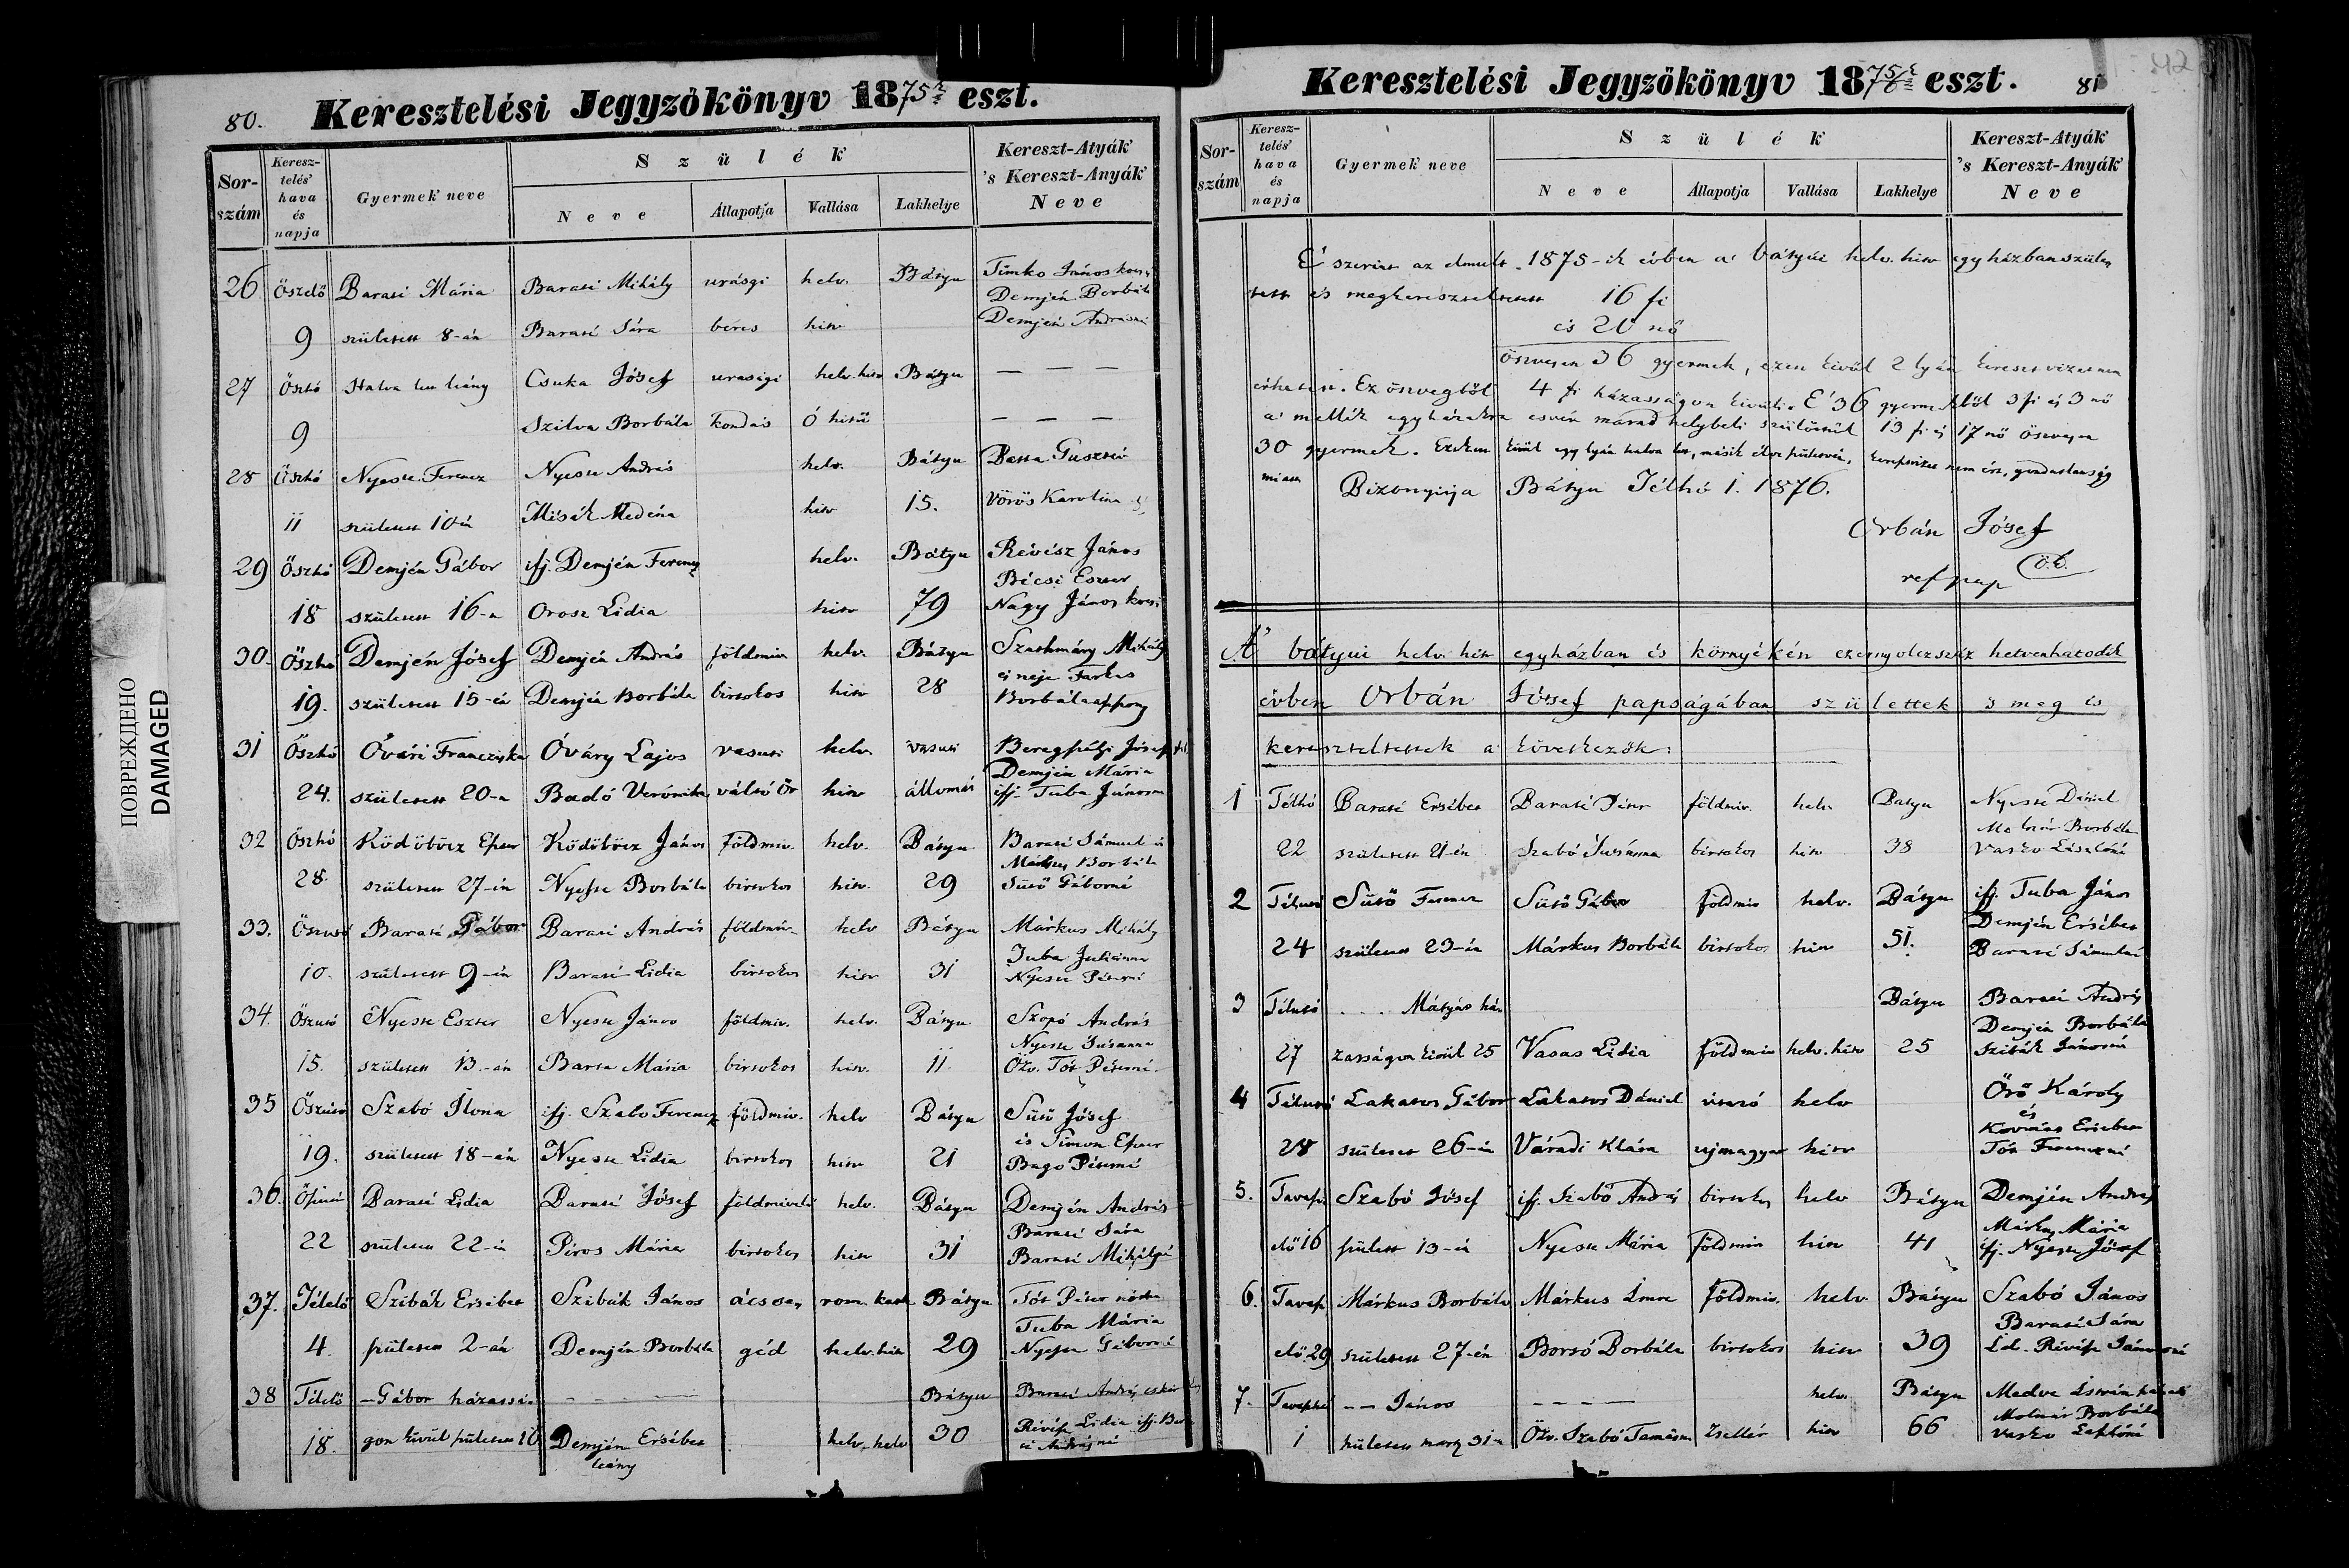 80.
Keresztelési Jegyzőkönyv 1875 eszt.
Sor-szám
Keresz-telés' hava és napja
Gyermek neve
Szülék
Neve
Állapotja
Vallása
Lakhelye
Kereszt-Atyák 's Kereszt-Anyák Neve
26 Őszelő Barati Mária Barati Mihály urasgi helv. Bátyu Timko János
Demjén Borbála
9 született 8-án Barati Sára béres hitv Demjén Andrásné
27 Őszhó Halva leány Csuka Jósef urasigi helv. hitv Bátyu — — —
9 Szilva Borbála kondás Ó hitű — — —
28 Őszhó Nyeste Ferencz Nyeste András helv. Bátyu Gusztáv
11 született 10-én Misák Medéna hitv 15. Vörös Karolina
29 Őszhó Demjén Gábor ifj. Demjén Ferencz helv. Bátyu Révész János
Bécsi Eszter
18 született 16-n Orosz Lidia hitv 79 Nagy János
30. Őszhó Demjén Jósef Demjén András földmiv helv. Bátyu Szathmáry Mihály
és neje Farkas
19. született 15-én Demjén Borbála birtokos hitv 28 Borbála
31 Őszhó Óvári Francziska Óváry Lajos vasuti helv. vasuti Beregszászi Jósef
Demjén Mária
24. született 20-n Badó Verónika váltó őr hitv állomás ifj. Tuba Jánosné
32 Őszhó Ködöböcz Eszter Ködöböcz János földmiv. helv. Bátyu Barati Sámuel és
Márkus Borbála
28. született 27-én Nyeste Borbála birtokos hitv. 29 Sütő Gáborné
33. Őszutó Barati Gábor Barati András földmiv. helv Bátyu Márkus Mihály
Tuba Juliánna
10. született 9-én Barati Lidia birtokos hitv 31 Nyeste Péterné
34. Őszutó Nyeste Eszter Nyeste János földmiv. helv. Bátyu Szopó András
Nyeste Susánna
15. született 13-án Barta Mária birtokos hitv. 11. Özv. Tót Péterné
35 Őszutó Szabó Ilona ifj. Szabo Ferencz földmiv. helv Bátyu Sütő Jósef
és Simon Eszter
19. született 18-án Nyeste Lidia birtokos hitv 21 Bago Péterné
36. Őszutó Barati Lidia Barati Jósef földmivelő helv. Bátyu Demjén András
Barati Sára
22 született 22-én Piros Mária birtokos hitv 31 Barati Mihályné
37. Télelő Szibák Ersébet Szibák János ács rom. kath Bátyu Tót Péter
Tuba Mária
4. született 2-án Demjén Borbála géd helv. hitv 29 Nyeste Gáborné
38 Télelő — Gábor házassá- Bátyu Barati András
Révész Lidia ifj.
18. gon kivül született 10 Demjén Ersébet helv. helv 30 Andrásné
leány
Keresztelési Jegyzőkönyv 1875/6 eszt.
81
Sor-szám
Keresz-telés' hava és napja
Gyermek neve
Szülék
Neve
Állapotja
Vallása
Lakhelye
Kereszt-Atyák 's Kereszt-Anyák Neve
E' szerint az elmult 1875-ik évben a' bátyui helv. hitv egyházban szüle
tett és megkereszteltetett 16 fi
és 20 nő
öszvesen 36 gyermek, ezen kivül 2 lyán keresztvizet nem
érhetett. Ez öszvegből 4 fi házasságon kivüli. E' 36 gyermekből 3 fi és 3 nő
a' mellék egyházakra esvén marad helybeli szülöttül 13 fi és 17 nő öszvesen
30 gyermek. Ezeken kivül egy lyán halva lett, másik élve születvén, keresztvizet nem ért, gondatlanság
miatt
Bizonyitja Bátyu Télhó 1. 1876.
Orbán Jósef
ref pap
A' bátyui helv. hitv egyházban és környékén ezernyolczszáz hetvenhatodik
évben Orbán Jósef papságában születtek s meg is
kereszteltettek a' következők:
1 Télhó Barati Ersébet Barati Péter földmiv. helv. Bátyu Nyeste Dániel
Molnár Borbála
22 született 21-én Szabó Susánna birtokos hitv 38 Vasko Lászlóné
2 Télutó Sütő Ferencz Sütő Gábor földmiv helv. Bátyu ifj. Tuba János
Demjén Ersébet
24 született 23-án Márkus Borbála birtokos hitv 51. Barati Sámuelné
3 Télutó . . . Mátyás há- Bátyu Barati András
Demjén Borbála
27 zasságon kivül 25 Vasas Lidia földmiv helv. hitv 25 Szibák Jánosné
4 Télutó Lakatos Gábor Lakatos Dániel helv Őrő Károly
és
Kovács Ersébet
28 született 26-án Váradi Klára ujmagyar hitv Tót Ferenczné
5. Tavasz Szabó Jósef ifj. Szabó András birtokos helv Bátyu Demjén András
Márkus Mária
elő 16 született 13-án Nyeste Mária földmiv hitv 41 ifj. Nyeste Jósef
6. Tavasz Márkus Borbála Márkus Imre földmiv. helv Bátyu Szabó János
Barati Sára
elő 29 született 27-én Borsó Borbála birtokos hitv 39 Id. Révész Jánosné
7. Tavaszhó — — János — — — — helv. Bátyu Medve István
Molnár Borbála
1 született márcz 31-n Özv. Szabó Tamásné Zsellér hitv 66 Vasko Lászlóné
ПОВРЕЖДЕНО
DAMAGED